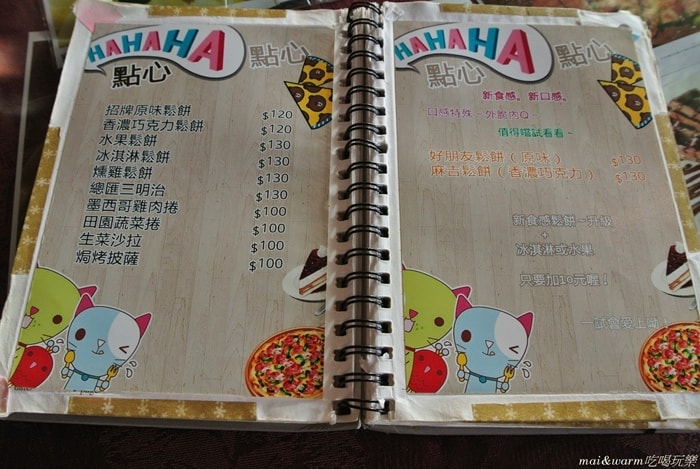 HAHAHA 點心
點心
招牌原味鬆餅 $120
香濃巧克力鬆餅 $120
水果鬆餅 $130
冰淇淋鬆餅 $130
燻雞鬆餅 $130
總匯三明治 $130
墨西哥雞肉捲 $100
田園蔬菜捲 $100
生菜沙拉 $100
焗烤披薩 $100
HAHAHA 點心
點心
新食感。新口感。
口感特殊~外脆內Q
值得嚐試看看~
好朋友鬆餅（原味） $130
麻吉鬆餅（香濃巧克力） $130
新食感鬆餅~升級
+
冰淇淋或水果
只要加10元喔！
一試會愛上呦！
mai&warm吃喝玩樂